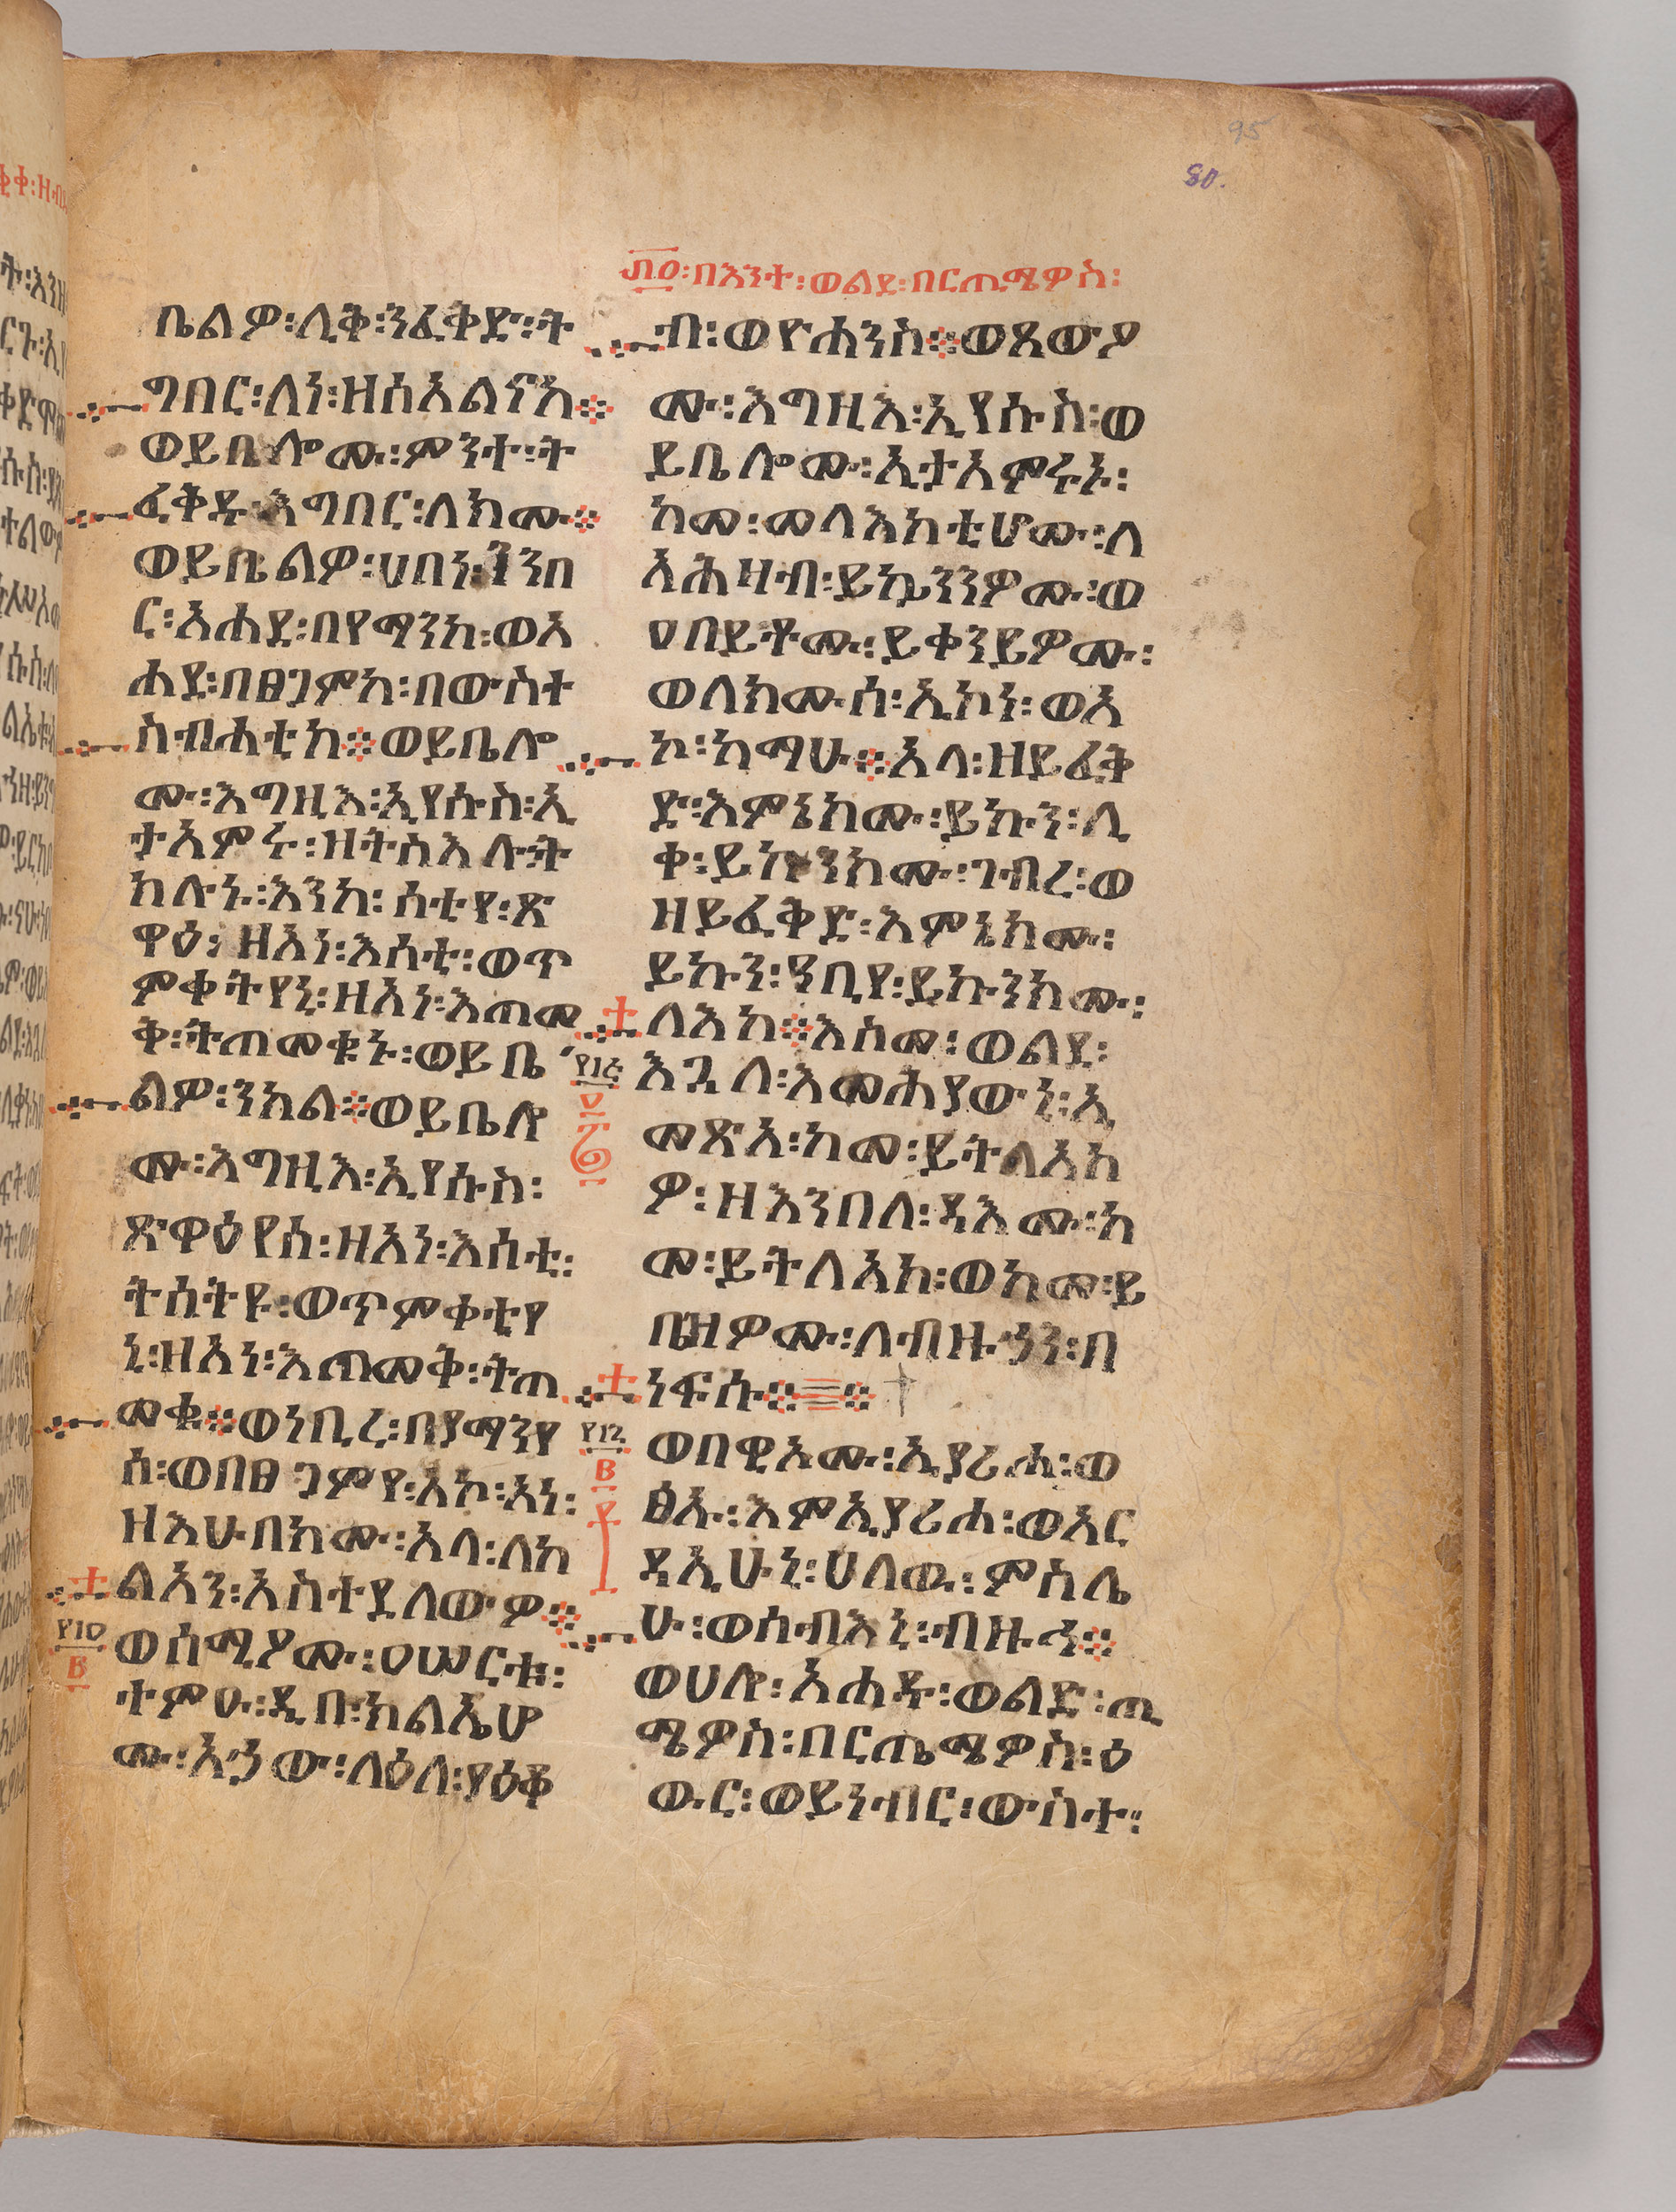 95
80.
፴፬፡በእንተ፡ወልደ፡በርጤሜዎስ፡
ቤልዎ፡ሊቅ፡ንፈቅድ፡ት
ግበር፡ለነ፡ዘሰአልናከ፨
ወይቤሎሙ፡ምንተ፡ት
ፈቅዱ፡እግበር፡ለክሙ፨
ወይቤልዎ፡ሀበነ፡ንንበ
ር፡አሐደ፡በየማንከ፡ወአ
ሐደ፡በፀጋምከ፡በውስተ
ስብሐቲከ፨ወይቤሎ
ሙ፡እግዚእ፡ኢየሱስ፡ኢ
ታአምሩ፡ዘትስእሉ፡ት
ክሉኑ፡እንከ፡ሰቲየ፡ጽ
ዋዕ፡ዘአነ፡እሰቲ፡ወጥ
ምቀትየኒ፡ዘአነ፡እጠመ
ቅ፡ትጠመቁኑ፡ወይቤ
ልዎ፡ንክል፨ወይቤሎ
ሙ፡እግዚእ፡ኢየሱስ፡
ጽዋዕየሰ፡ዘአነ፡እሰቲ፡
ትሰትዩ፡ወጥምቀቲየ
ኒ፡ዘአነ፡እጠመቅ፡ትጠ
መቁ፨ወነቢረ፡በየማንየ
ሰ፡ወበፀጋምየ፡አኮ፡አነ፡
ዘእሁበክሙ፡አላ፡ለከ
ልአን፡አስተደለውዎ፨
ወሰሚዖሙ፡ዐሠርቱ፡
ተምዑ፡ዲበ፡ክልኤሆ
ሙ፡አኃው፡ለዕለ፡ያዕቆ
ብ፡ወዮሐንስ፨ወጸውዖ
ሙ፡እግዚእ፡ኢየሱስ፡ወ
ይቤሎሙ፡ኢታአምሩኑ፡
ከመ፡መላእክቲሆሙ፡ለ
አሕዛብ፡ይኴንንዎሙ፡ወ
ዐበይቶሙ፡ይቀንይዎሙ፡
ወለክሙሰ፡ኢኮነ፡ወአ
ኮ፡ከማሁ፨አላ፡ዘይፈቅ
ድ፡እምኔክሙ፡ይኩን፡ሊ
ቀ፡ይኩንክሙ፡ገብረ፡ወ
ዘይፈቅድ፡እምኔክሙ፡
ይኩን፡ዓቢየ፡ይኩንክሙ፡
ለእከ፨እስመ፡ወልደ፡
እጓለ፡እመሕያውኒ፡ኢ
መጽአ፡ከመ፡ይትለአክ
ዎ፡ዘእንበለ፡ዳእሙ፡ከ
መ፡ይትለአክ፡ወከመ፡ይ
ቤዝዎሙ፡ለብዙኃን፡በ
ነፍሱ፨
ወበዊአሙ፡ኢያሪሐ፡ወ
ፅኡ፡እምኢያሪሐ፡ወአር
ዳኢሁኒ፡ሀለዉ፡ምስሌ
ሁ፡ወሰብእኒ፡ብዙኃን፨
ወሀሎ፡አሐዱ፡ወልድ፡ጤ
ሜዎስ፡በርጤሜዎስ፡ዕ
ውር፡ወይነብር፡ውስተ፡